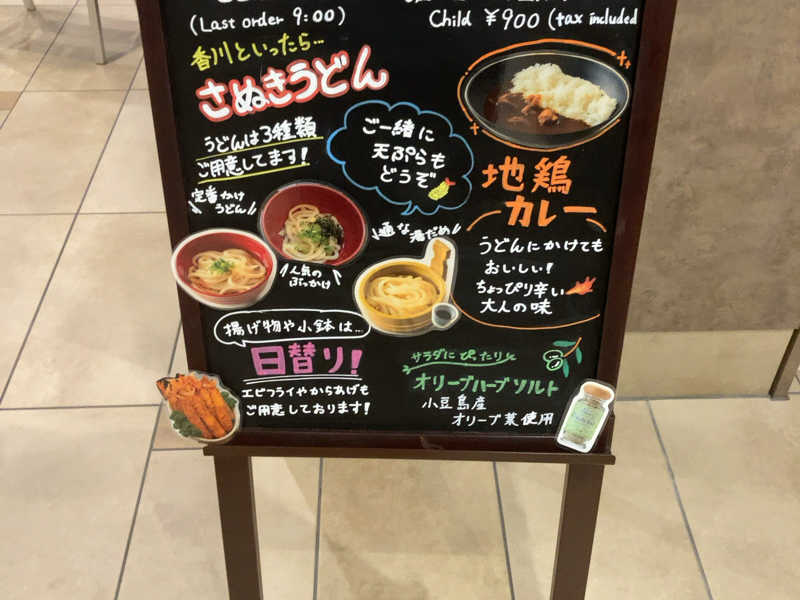 (Last order 9:00)
Child ¥900 (tax included
香川といったら…
さぬきうどん
うどんは3種類
ご用意してます!
ご一緒に
天ぷらも
どうぞ
定番かけ
うどん
人気の
ぶっかけ
通な湯だめ
地鶏
カレー
うどんにかけても
おいしい!
ちょっぴり辛い
大人の味
揚げ物や小鉢は…
日替り!
エビフライやからあげも
ご用意しております!
サラダにぴったり
オリーブハーブソルト
小豆島産
オリーブ葉使用